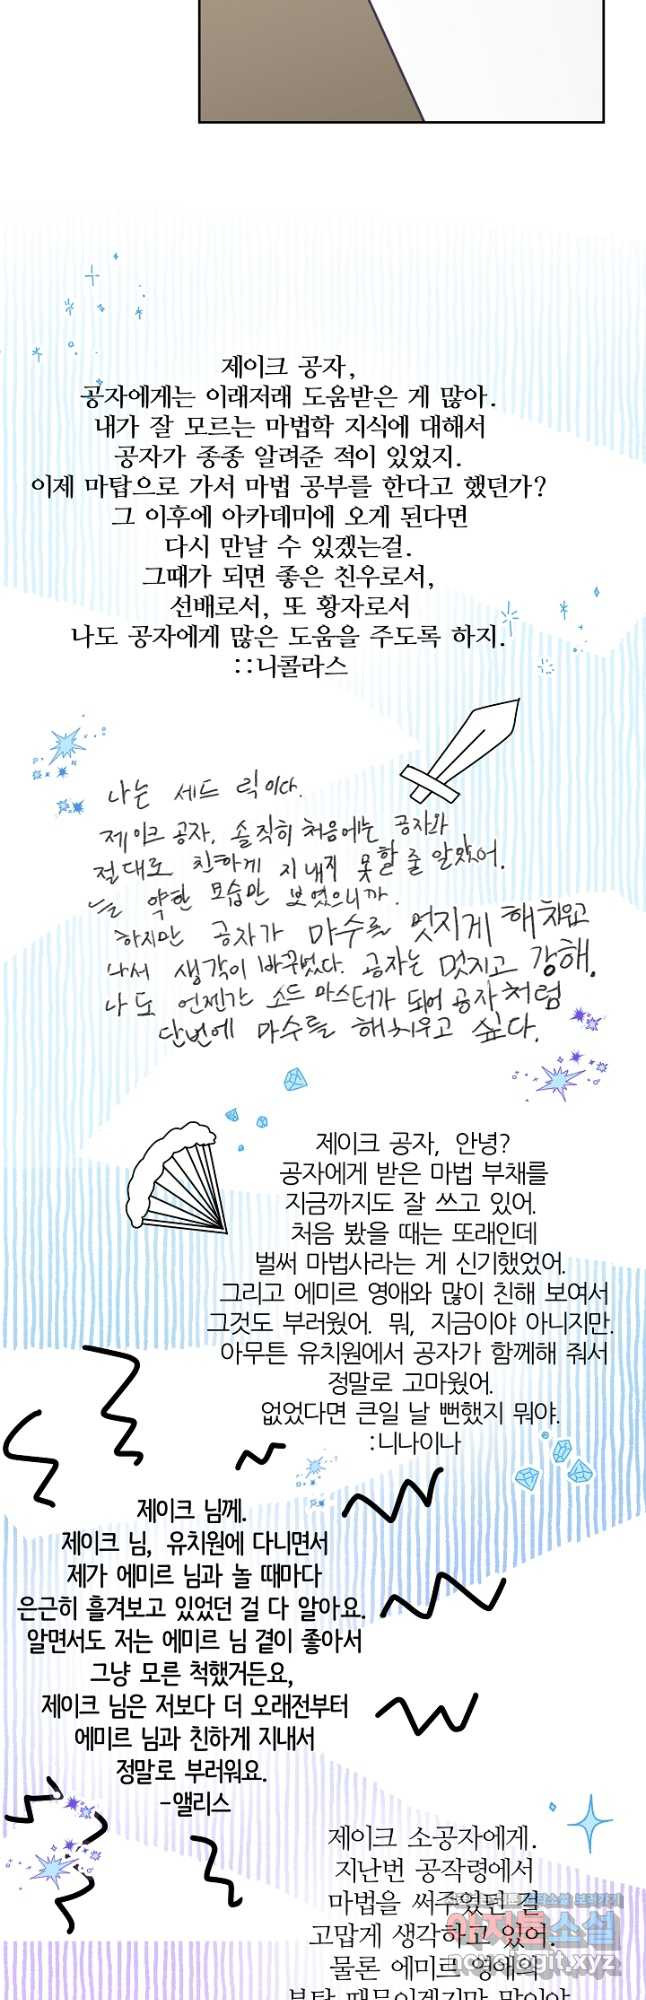 제이크 공자,
공자에게는 이래저래 도움받은 게 많아.
내가 잘 모르는 마법학 지식에 대해서
공자가 종종 알려준 적이 있었지.
이제 마탑으로 가서 마법 공부를 한다고 했던가?
그 이후에 아카데미에 오게 된다면
다시 만날 수 있겠는걸.
그때가 되면 좋은 친우로서,
선배로서, 또 황자로서
나도 공자에게 많은 도움을 주도록 하지.
::니콜라스
나는 세드 릭이다.
제이크 공자, 솔직히 처음에는 공자와
절대로 친하게 지내지 못할 줄 알았어.
늘 약한 모습만 보였으니까.
하지만 공자가 마수를 멋지게 해치우고
나서 생각이 바뀌었다. 공자는 멋지고 강해.
나도 언젠간 소드 마스터가 되어 공자처럼
단번에 마수를 해치우고 싶다.
제이크 공자, 안녕?
공자에게 받은 마법 부채를
지금까지도 잘 쓰고 있어.
처음 봤을 때는 또래인데
벌써 마법사라는 게 신기했었어.
그리고 에미르 영애와 많이 친해 보여서
그것도 부러웠어. 뭐, 지금이야 아니지만.
아무튼 유치원에서 공자가 함께해 줘서
정말로 고마웠어.
없었다면 큰일 날 뻔했지 뭐야.
:니나이나
제이크 님께.
제이크 님, 유치원에 다니면서
제가 에미르 님과 놀 때마다
은근히 흘겨보고 있었던 걸 다 알아요.
알면서도 저는 에미르 님 곁이 좋아서
그냥 모른 척했거든요,
제이크 님은 저보다 더 오래전부터
에미르 님과 친하게 지내서
정말로 부러워요.
-앨리스
제이크 소공자에게.
지난번 공작령에서
마법을 써주었던 걸
고맙게 생각하고 있어.
물론 에미르 영애의
부탁 때문이겠지만 말이야